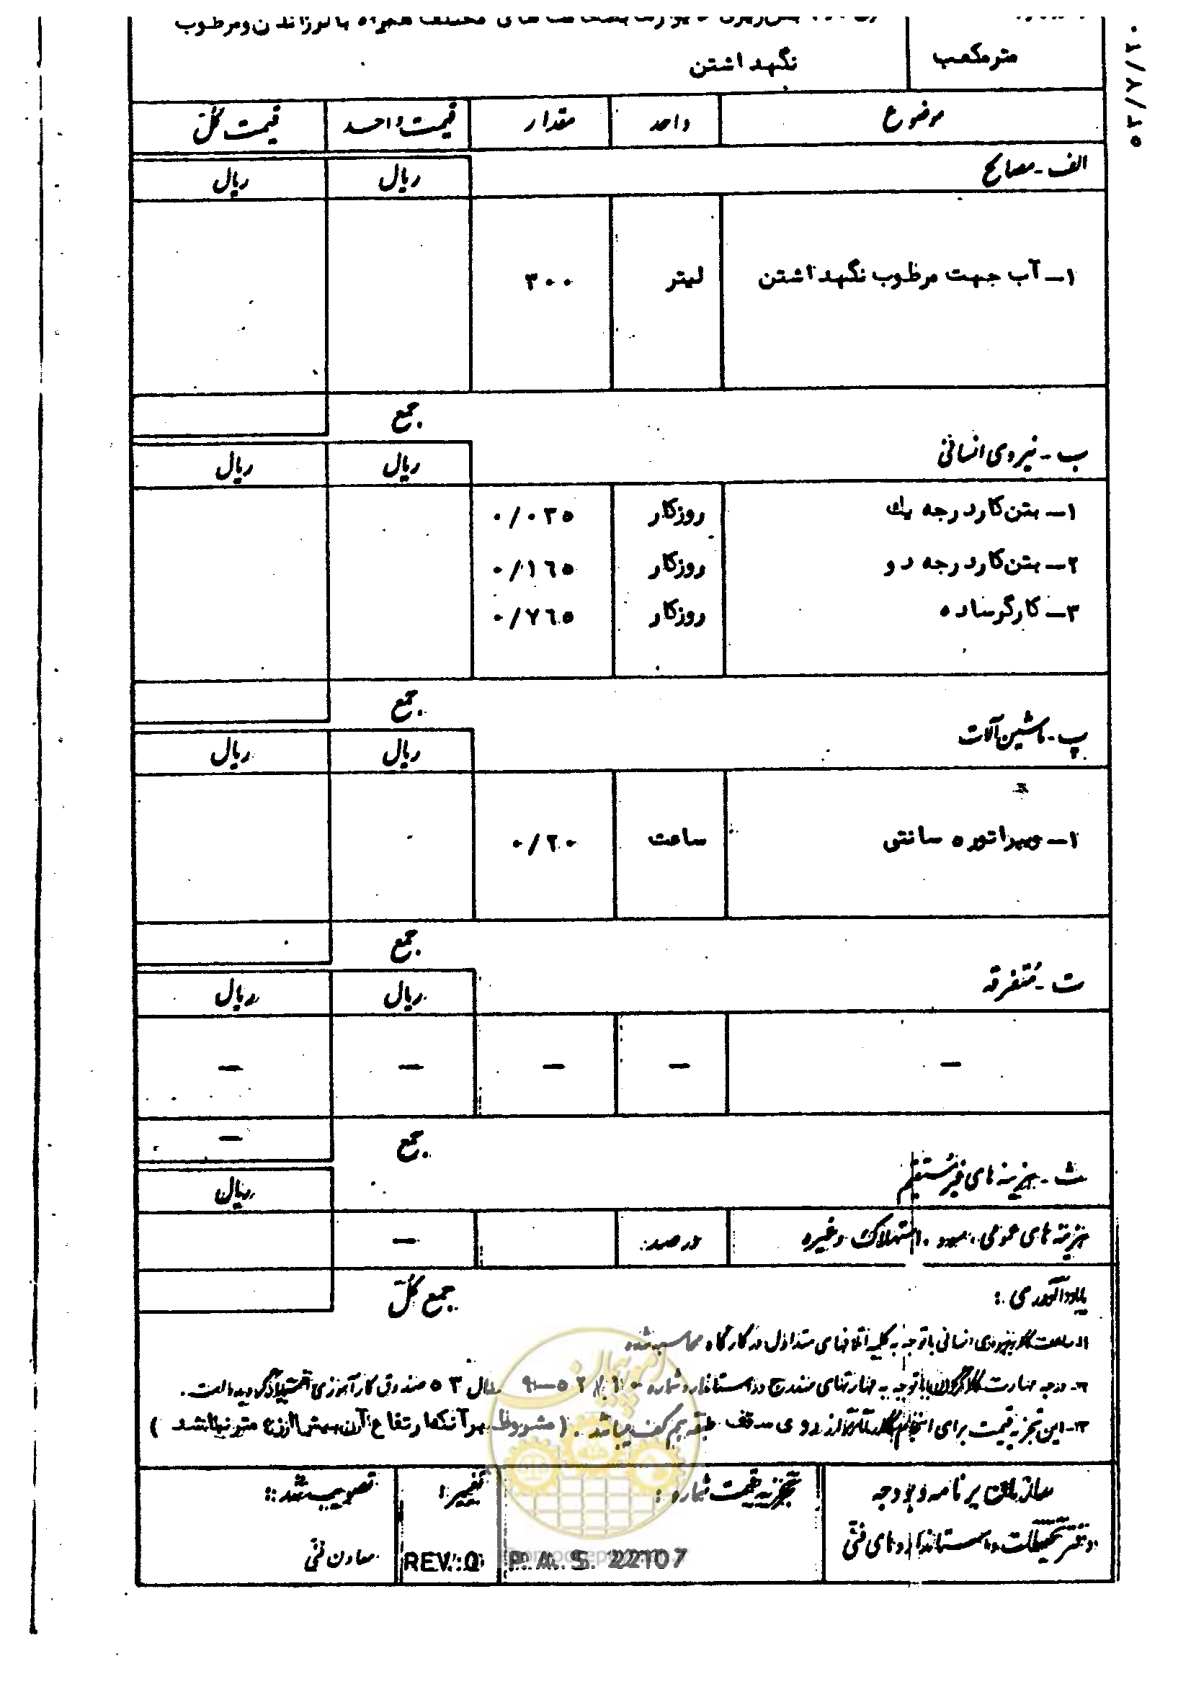 ۵۳/۷/۲۰
مترمکعب
مختلف همراه با لرزاندن ومرطوب
نگهداشتن
موضوع واحد مقدار قیمت واحد قیمت کلّ
الف - مصالح ریال ریال
۱- آب جهت مرطوب نگهداشتن لیتر ۳۰۰
جمع
ب - نیروی انسانی ریال ریال
۱- بتن کار درجه یک روزکار ۰/۰۳۵
۲- بتن کار درجه دو روزکار ۰/۱۶۵
۳- کارگر ساده روزکار ۰/۷۶۵
جمع
پ - ماشین آلات ریال ریال
۱- ویبراتور ۵ سانتی ساعت ۰/۲۰
جمع
ت - مُتفرقه ریال ریال
— — — — —
جمع —
ث - هزینه های غیرمُستقیم ریال
هزینه های عمومی، سود، استهلاک وغیره درصد —
جمع کلّ
یادآوری :
۱- ساعت کار نیروی انسانی با توجه به کلیه اتلافهای متداول در کارگاه محاسبه شده
۲- درجه مهارت کارگران با توجه به مهارتهای مندرج در استاندارد شماره سال ۵۳ صندوق کارآموزی
۳- این تجزیه قیمت برای انجام کار روی سقف طبقه همکف میباشد . ( مشروط بر آنکه ارتفاع آن بیش از ع متر نباشد )
سازمان برنامه و بودجه
دفتر تحقیقات و استانداردهای فنّی
تجزیه قیمت شماره :
P.A.S. 22107
تغییر :
REV.:0
تصویب شد :
معاون فنّی
امور پیمان